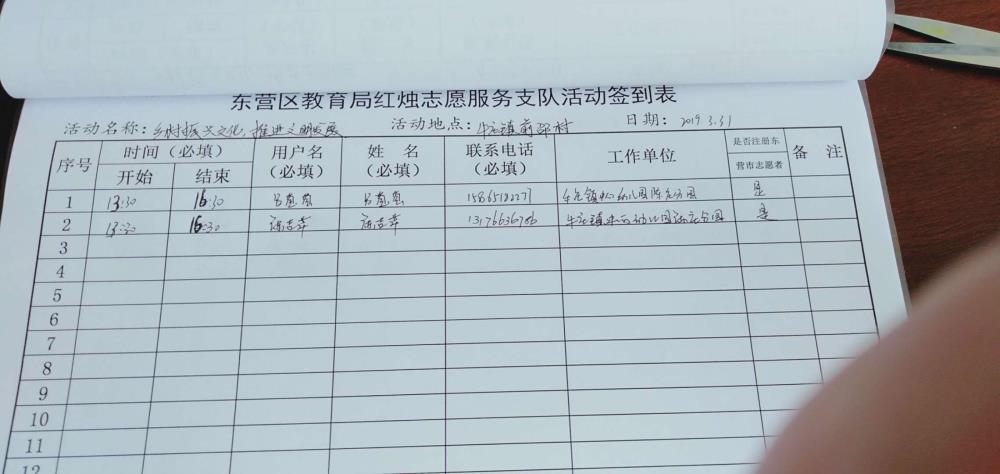 东营区教育局红烛志愿服务支队活动签到表
活动名称：乡村振兴文化，推进文明发展 活动地点：牛庄镇前邵村 日期：2019.3.31
序号 时间（必填） 用户名（必填） 姓 名（必填） 联系电话（必填） 工作单位 是否注册东营市志愿者 备 注
开始 结束
1 13:30 16:30 吕 吕 15865182271 牛庄镇中心幼儿园陈庄分园 是
2 13:30 16:30 13176636706 牛庄镇中心幼儿园陈庄分园 是
3
4
5
6
7
8
9
10
11
12